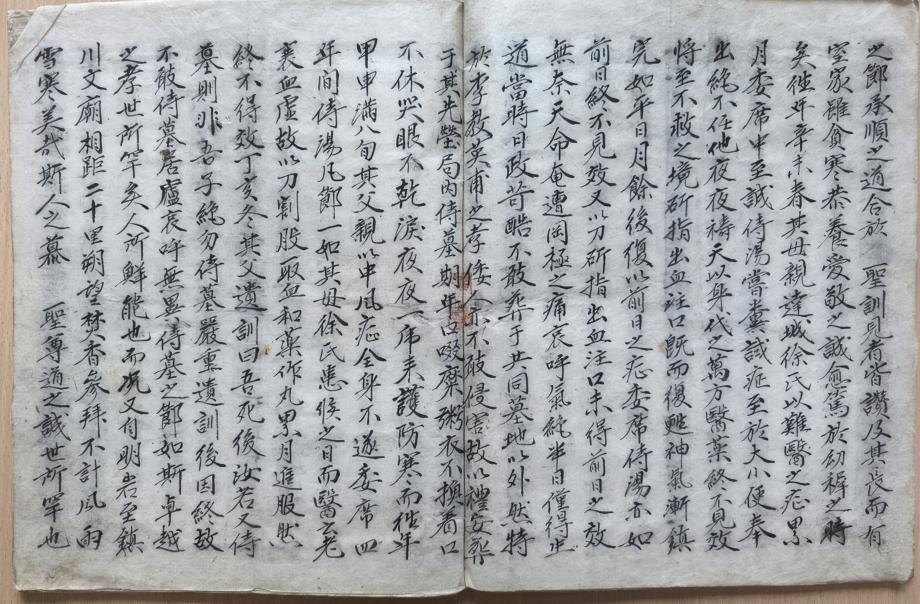 之節承順之道合於 聖訓見者皆讚及其長而有
室家雖貧寒恭養愛敬之誠愈篤於幼稚之時
矣往年辛未春其母親達城徐氏以難醫之症累
月委席中至誠侍湯嘗糞誠症至於大小便奉
出絶不任他夜夜禱天以身代之萬方醫藥終不見效
將至不救之境斫指出血注口旣而復甦神氣漸鎭
完如平日月餘後復以前日之症委席侍湯亦如
前日終不見效又以刀斫指出血注口未得前日之效
無奈天命奄遭罔極之痛哀呼氣絶半日僅得生
道當時日政苛酷不敢葬于共同墓地以外然特
於李教英甫之孝倭人亦不敢侵害故以禮安葬
于其先塋局內侍墓期年口啜糜粥衣不換着口
不休哭眼不乾淚夜夜一席來護防寒而往年
甲申滿八旬其父親以中風症全身不遂委席四
年間侍湯凡節一如其母徐氏患候之日而醫云老
衰血虛故以刀割股取血和藥作丸累月進服然
終不得效丁亥冬其父遺訓曰吾死後汝若又侍
墓則非吾子絶勿侍墓嚴重遺訓後因終故
不敢侍墓居廬哀呼無異侍墓之節如斯卓越
之孝世所罕矣人所鮮能也而况又自明岩至鎭
川文廟相距二十里朔望焚香參拜不計風雨
雪寒美哉斯人之慕 聖尊道之誠世所罕也